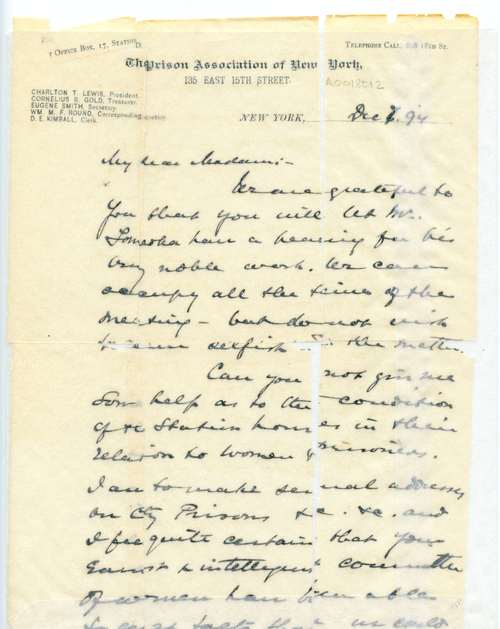 Post Office Box, 17, Station D.
Telephone Call, 18th St.
The Prison Association of New York,
135 EAST 15TH STREET.
A0018012
CHARLTON T. LEWIS, President.
CORNELIUS B. GOLD, Treasurer.
EUGENE SMITH, Secretary.
WM. M. F. ROUND, Corresponding Secretary.
D. E. KIMBALL, Clerk.
NEW YORK, Dec 94
My dear Madam:-
We are grateful to
you that you will let Mr.
have a hearing for his
very noble work. We can
occupy all the time of the
meeting - but do not wish
to seem selfish in the matter.
Can you not give me
some help as to the condition
of the Station houses in their
relation to women & prisoners.
I am to make several addresses
on City Prisons &c. &c. and
I feel quite certain that your
Earnest & intelligent committee
of women have been able
to facts that we could